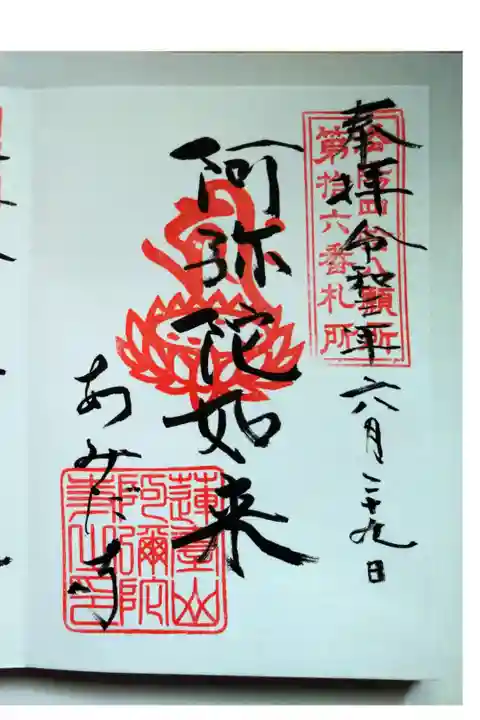 奉拝 令和二年 六月二十九日
四
八願所
第拾六番札所
阿弥陀如来
あみだ寺
蓮臺山
阿彌陀
寺之印